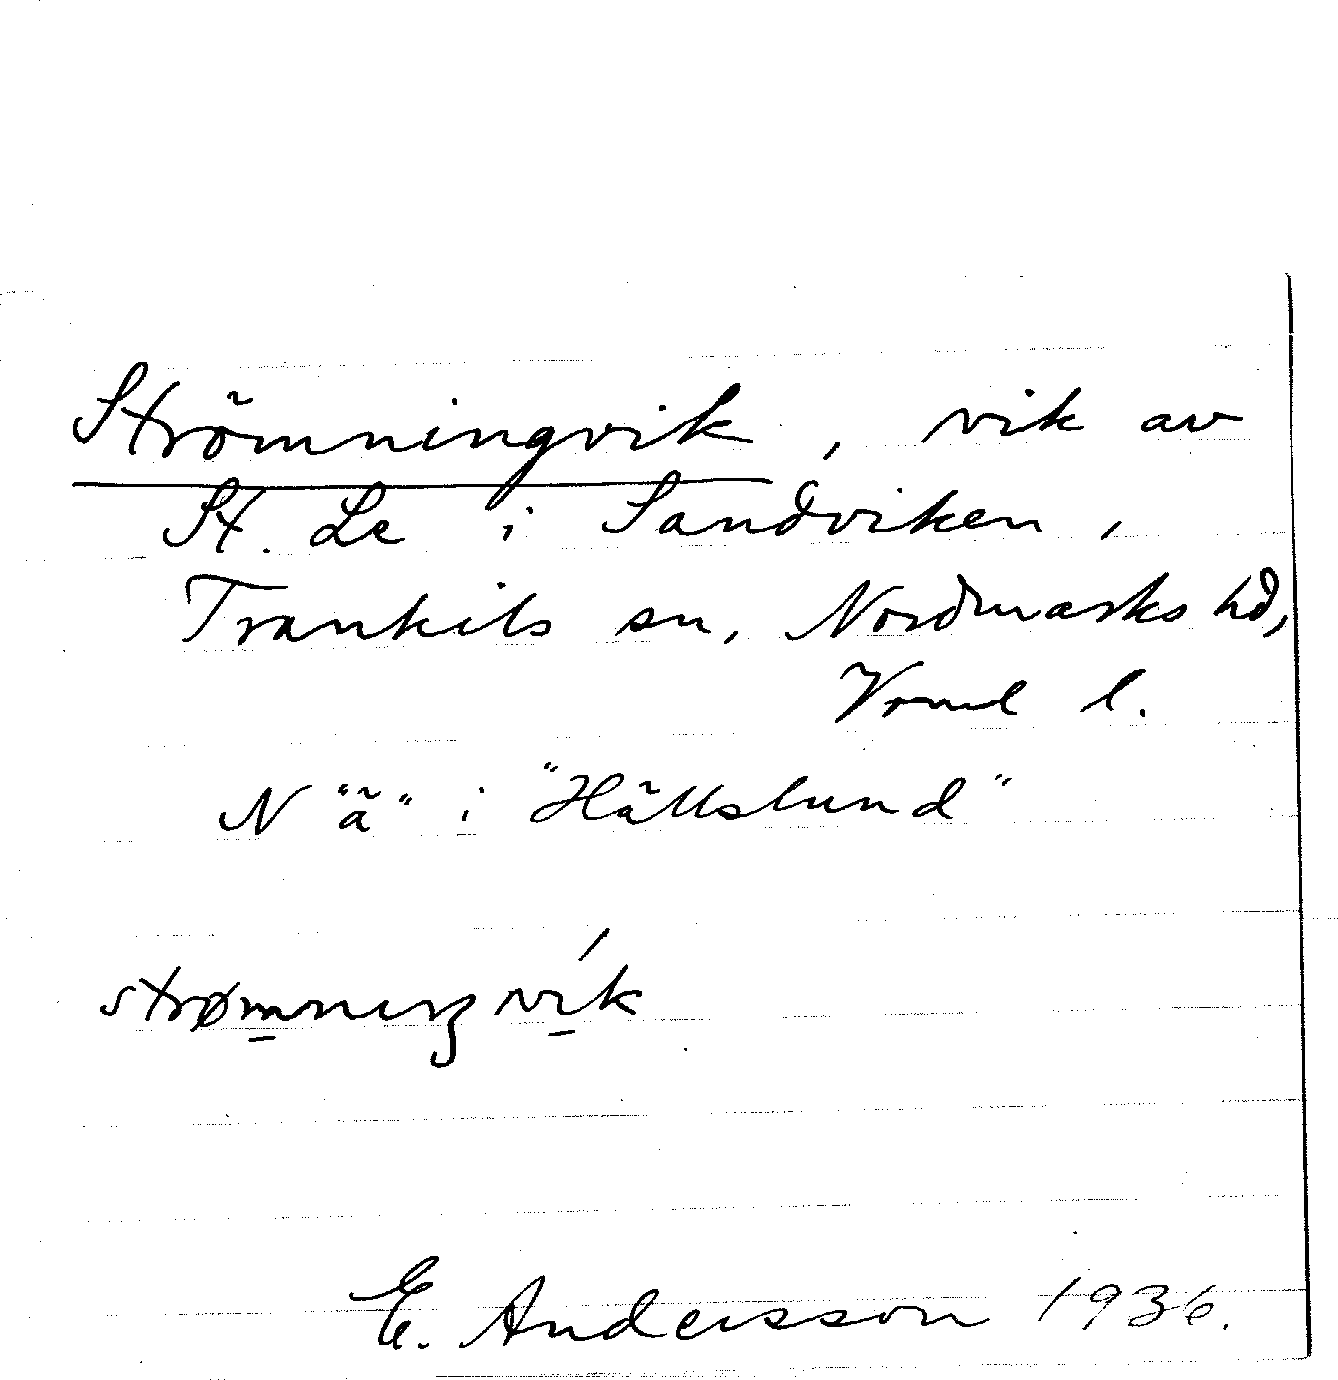 Strömningvik, vik av
St. Le i Sandviken,
Trankils sn, Nordmarks hd,
Vrml l.
N "ä" i "Hällslund"
strømnıŋvík
E. Andersson 1936.